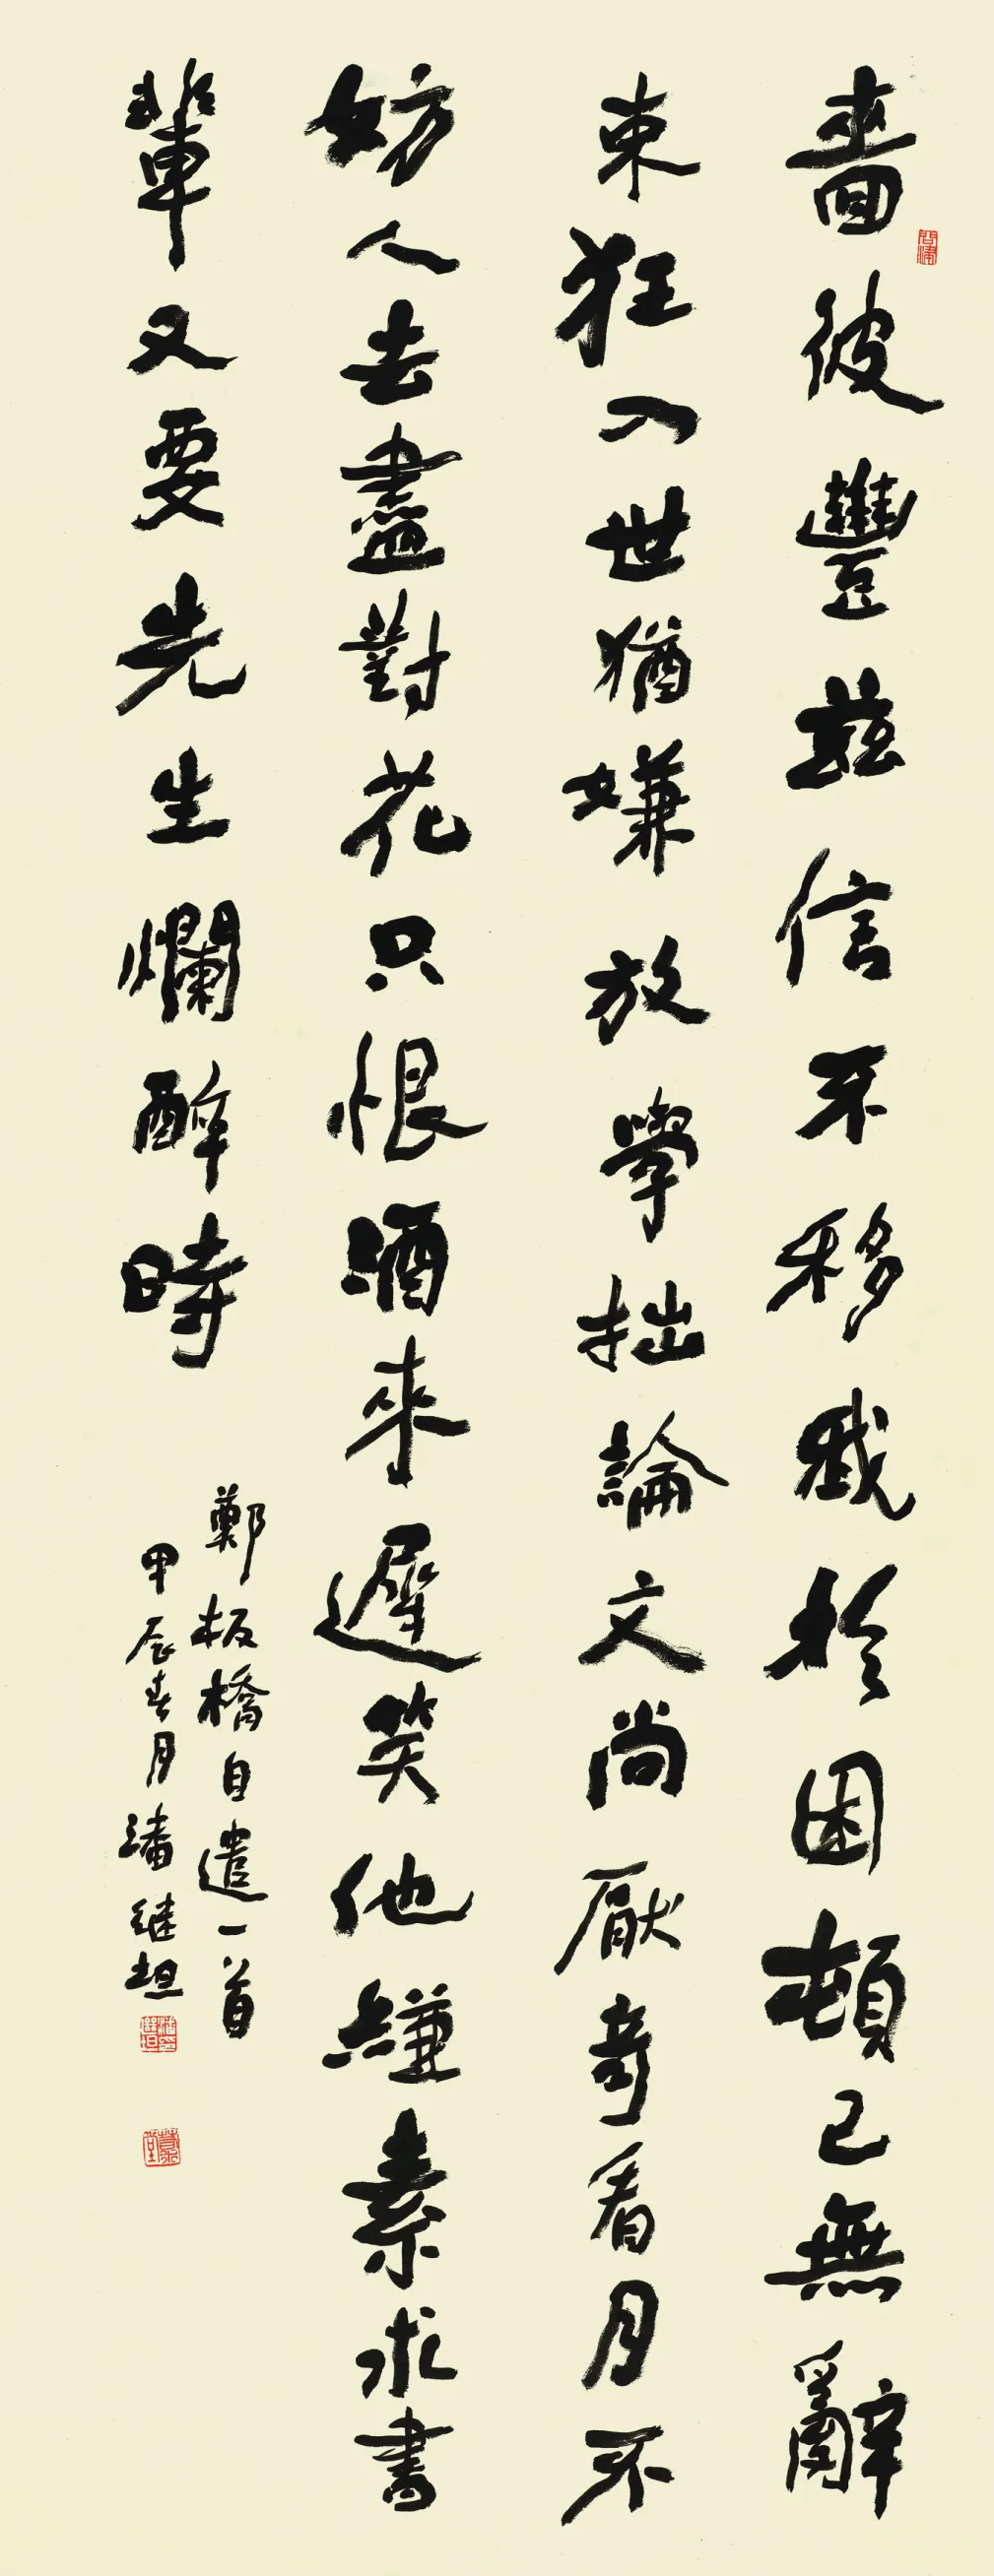 嗇彼豐兹信不移我於困頓已無辭
束狂入世猶嫌放學拙論文尚厭奇看月不
妨人去盡對花只恨酒來遲笑他縑素求書
輩又要先生爛醉時
鄭板橋自遣一首
甲辰春月潘继坦